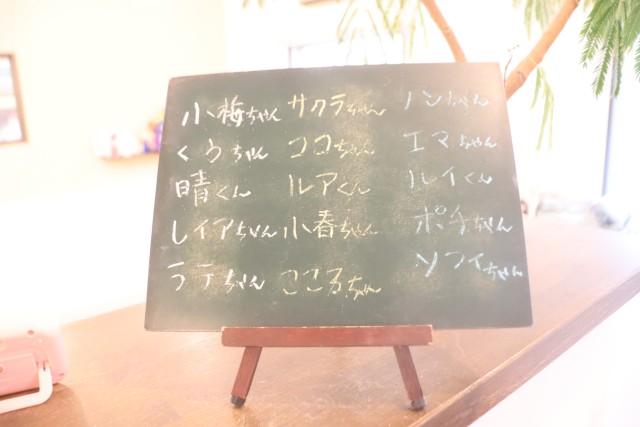 小梅ちゃん サクラちゃん ノンちゃん
くうちゃん ココちゃん エマちゃん
晴くん ルアくん ルイくん
レイアちゃん 小春ちゃん ポチちゃん
ラテちゃん こころちゃん ソフィちゃん